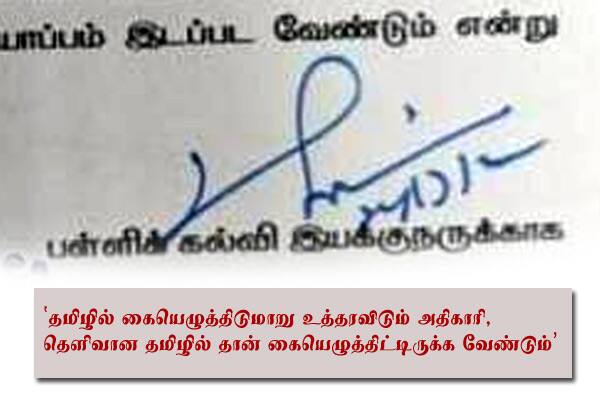 யொப்பம் இடப்பட வேண்டும் என்று
பள்ளிக் கல்வி இயக்குநருக்காக
'தமிழில் கையெழுத்திடுமாறு உத்தரவிடும் அதிகாரி,
தெளிவான தமிழில் தான் கையெழுத்திட்டிருக்க வேண்டும்'